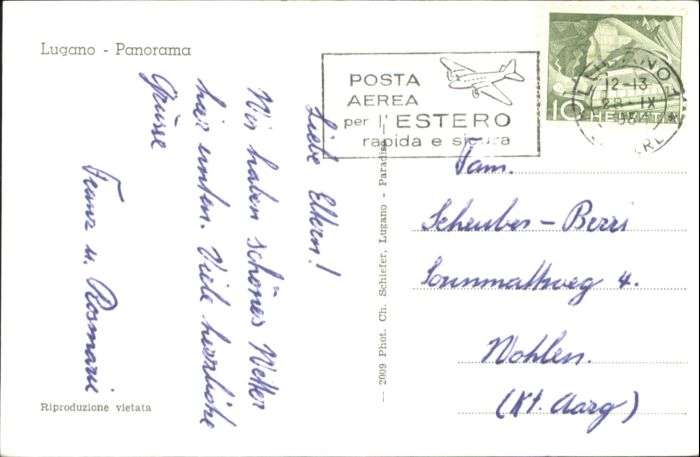 Lugano - Panorama
Liebe Eltern!
Wir haben schönes Wetter
hier unten. Viele herzliche
Grüsse
Franz u. Rosmarie
Riproduzione vietata
— 2009 Phot. Ch. Schiefer, Lugano - Paradiso —
POSTA
AEREA
per l'ESTERO
rapida e sicura
LUGANO 1
12-13
28. IX
10 HELVETIA
Fam.
Scheuber-Berri
Sonnmattweg 4.
Wohlen.
(Kt. Aarg)